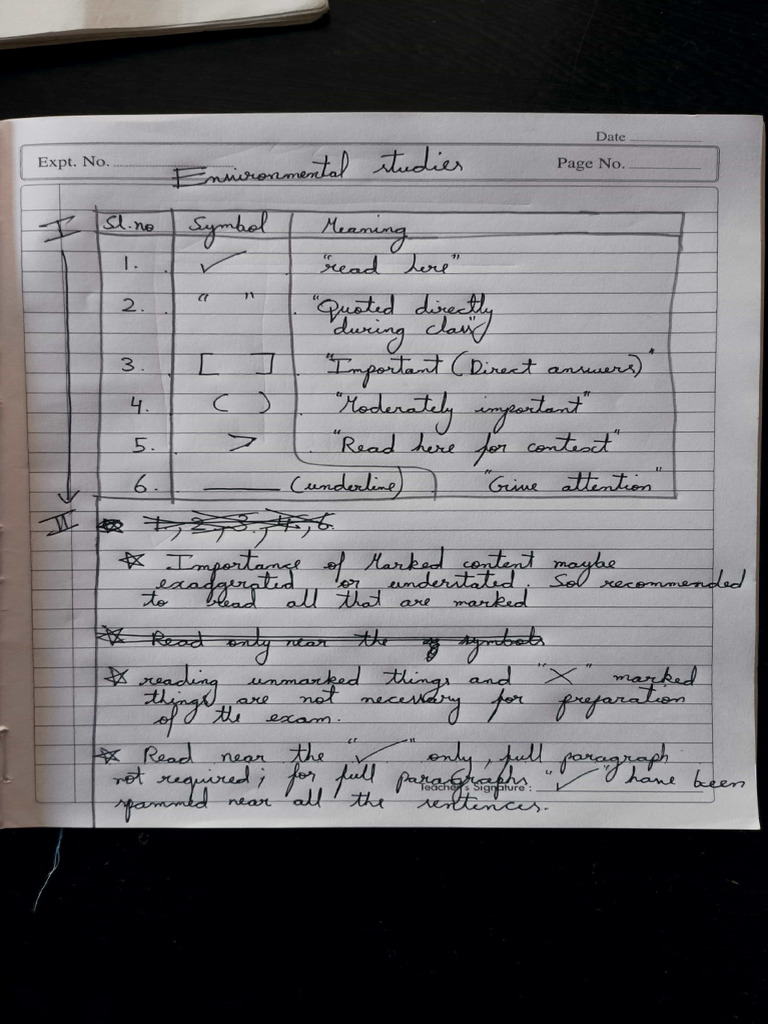 Date
Expt. No. Page No.
Environmental studies
I Sl.no Symbol Meaning
1. ✓ "read here"
2. " " "Quoted directly
during class"
3. [ ] "Important (Direct answers)"
4. ( ) "Moderately important"
5. > "Read here for context"
6. ____ (underline) "Give attention"
II 1, 2, 3, 4, 6.
☆ Importance of Marked content maybe
exaggerated or understated. So recommended
to read all that are marked
☆ Read only near the symbols
☆ reading unmarked things and "X" marked
things are not necessary for preparation
of the exam.
☆ Read near the "✓" only, full paragraph
not required; for full paragraphs "✓" have been
Teacher's Signature :
spammed near all the sentences.